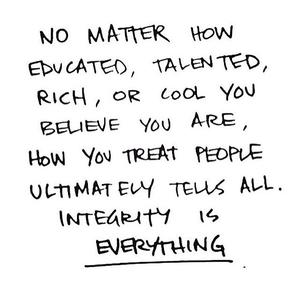 NO MATTER HOW
EDUCATED, TALENTED,
RICH, OR COOL YOU
BELIEVE YOU ARE,
HOW YOU TREAT PEOPLE
ULTIMATELY TELLS ALL.
INTEGRITY IS
EVERYTHING